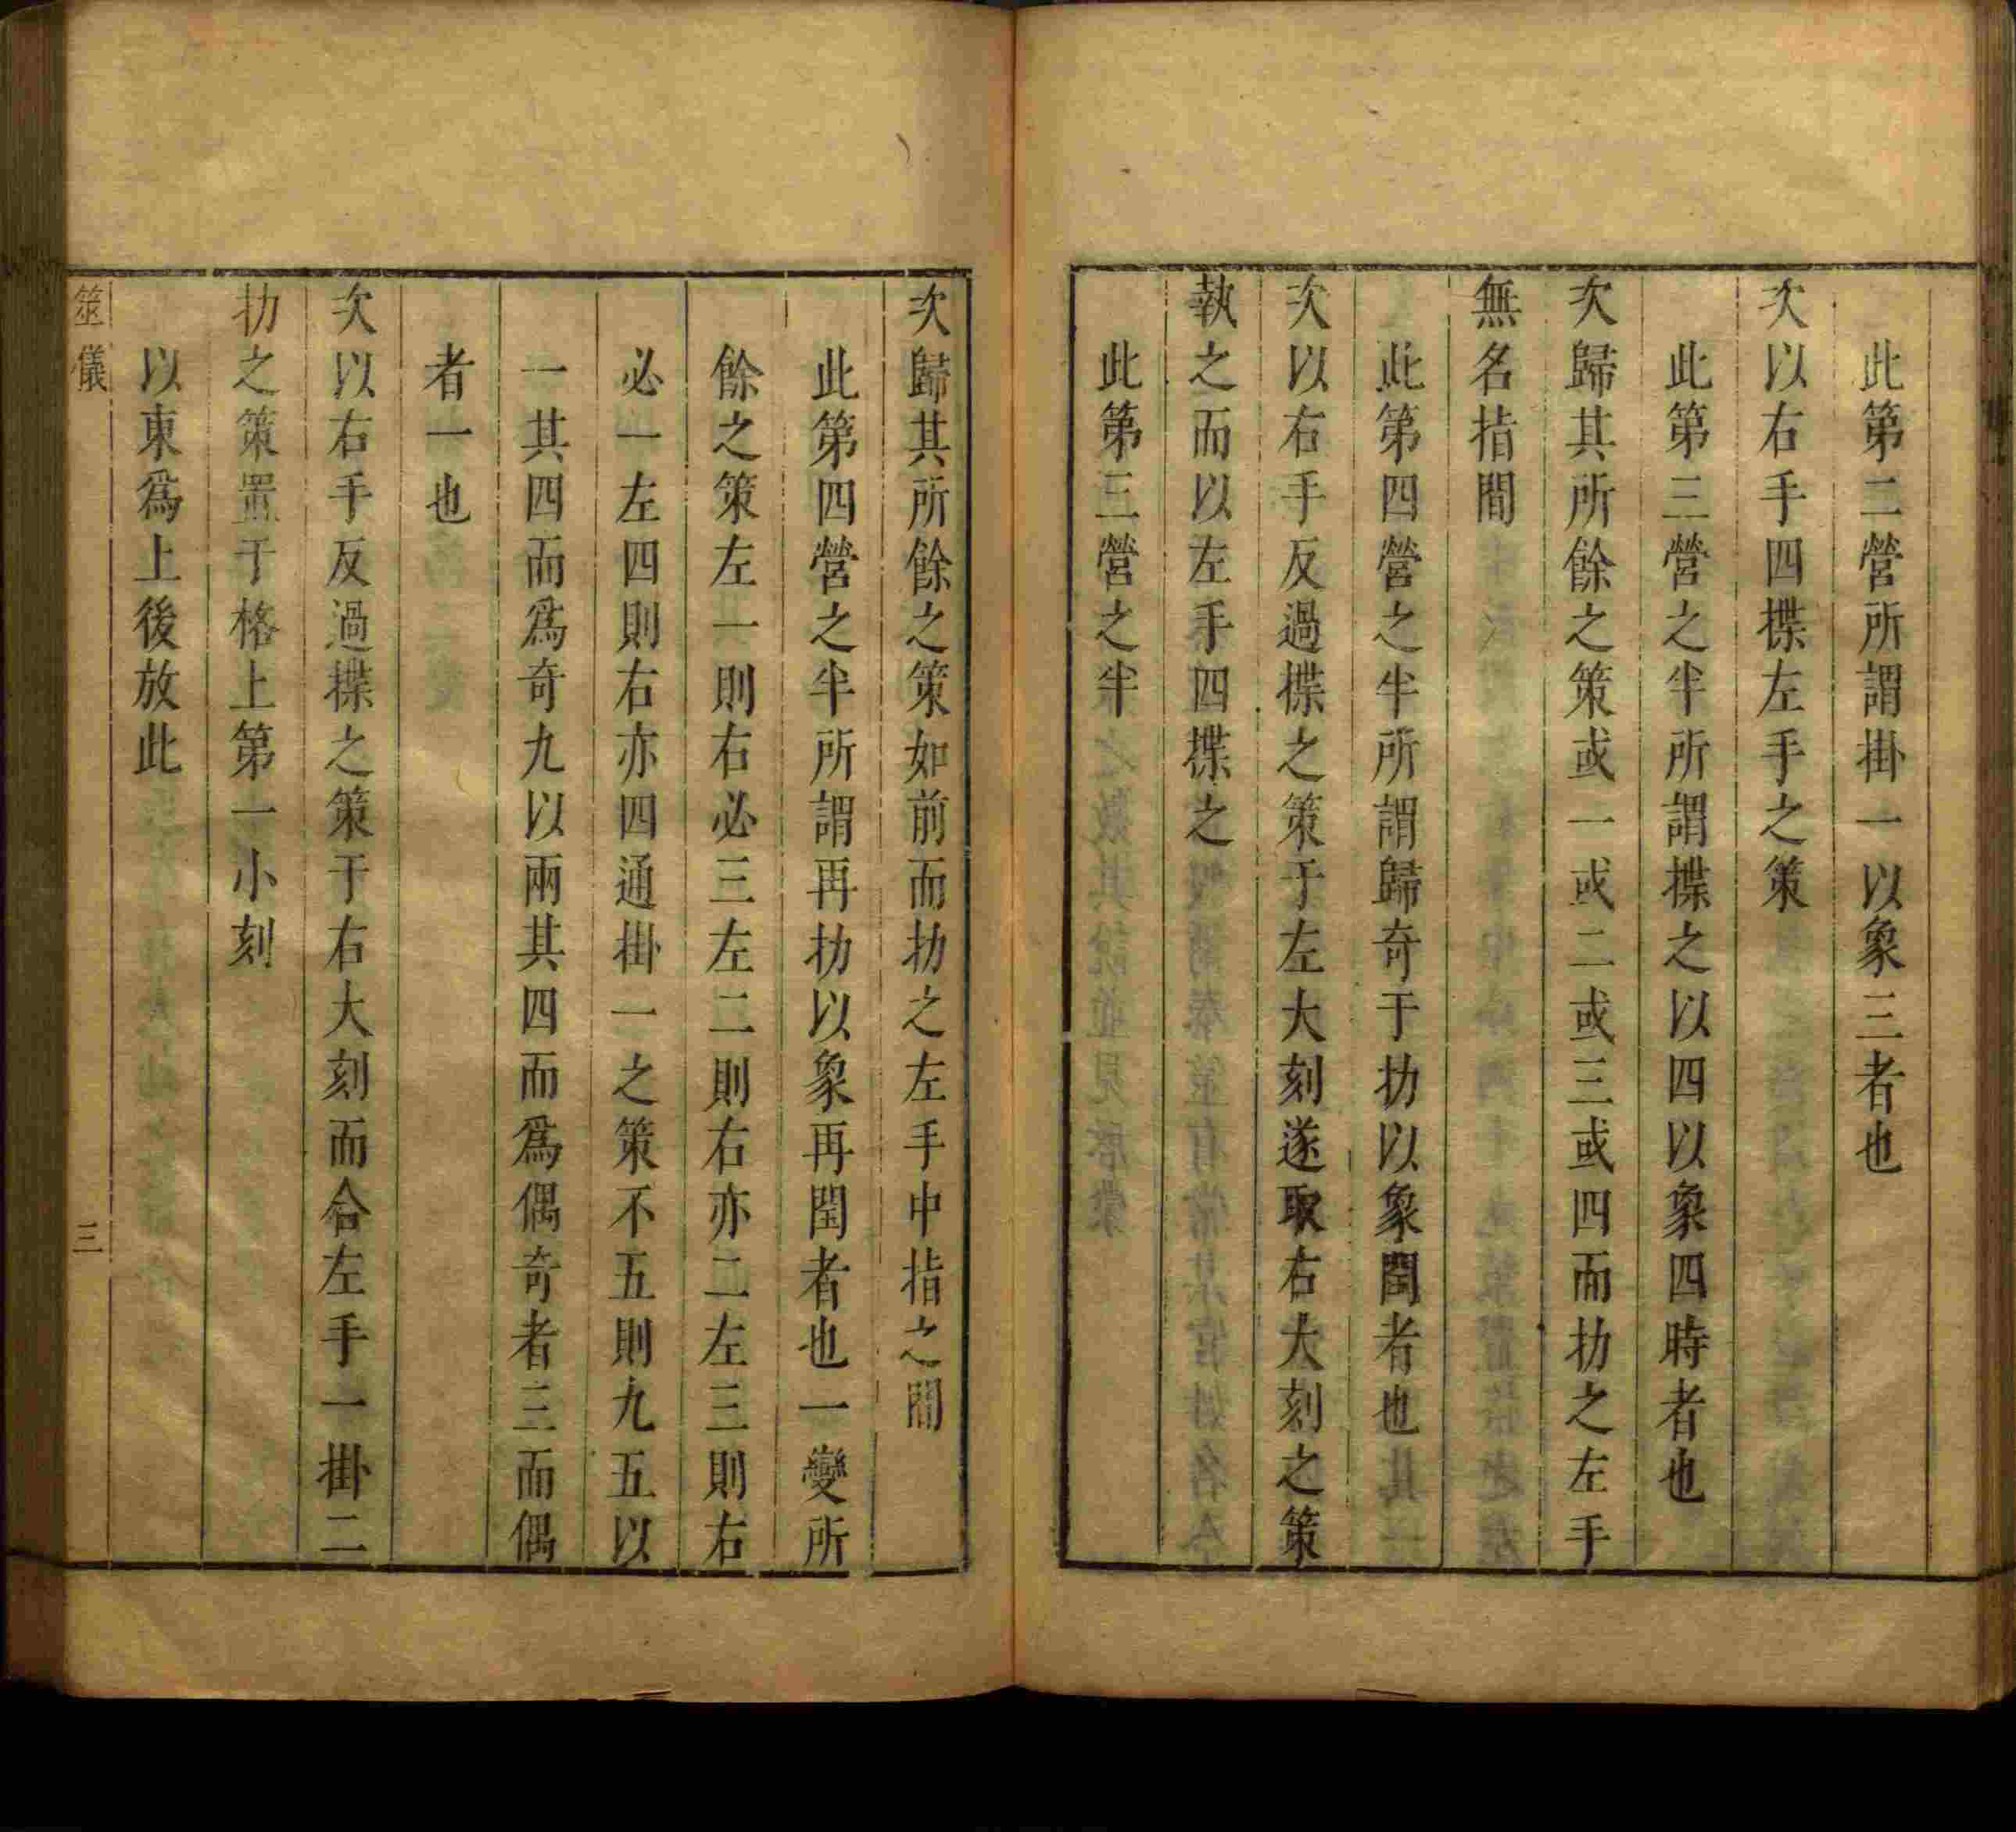 此第二營所謂掛一以象三者也
次以右手四揲左手之策
此第三營之半所謂揲之以四以象四時者也
次歸其所餘之策或一或二或三或四而扐之左手
無名指間
此第四營之半所謂歸奇于扐以象閏者也
次以右手反過揲之策于左大刻遂取右大刻之策
執之而以左手四揲之
此第三營之半
次歸其所餘之策如前而扐之左手中指之間
此第四營之半所謂再扐以象再閏者也一變所
餘之策左一則右必三左二則右亦二左三則右
必一左四則右亦四通掛一之策不五則九五以
一其四而爲奇九以兩其四而爲偶奇者三而偶
者一也
次以右手反過揲之策于右大刻而合左手一掛二
扐之策置于格上第一小刻
以東爲上後放此
筮儀
三